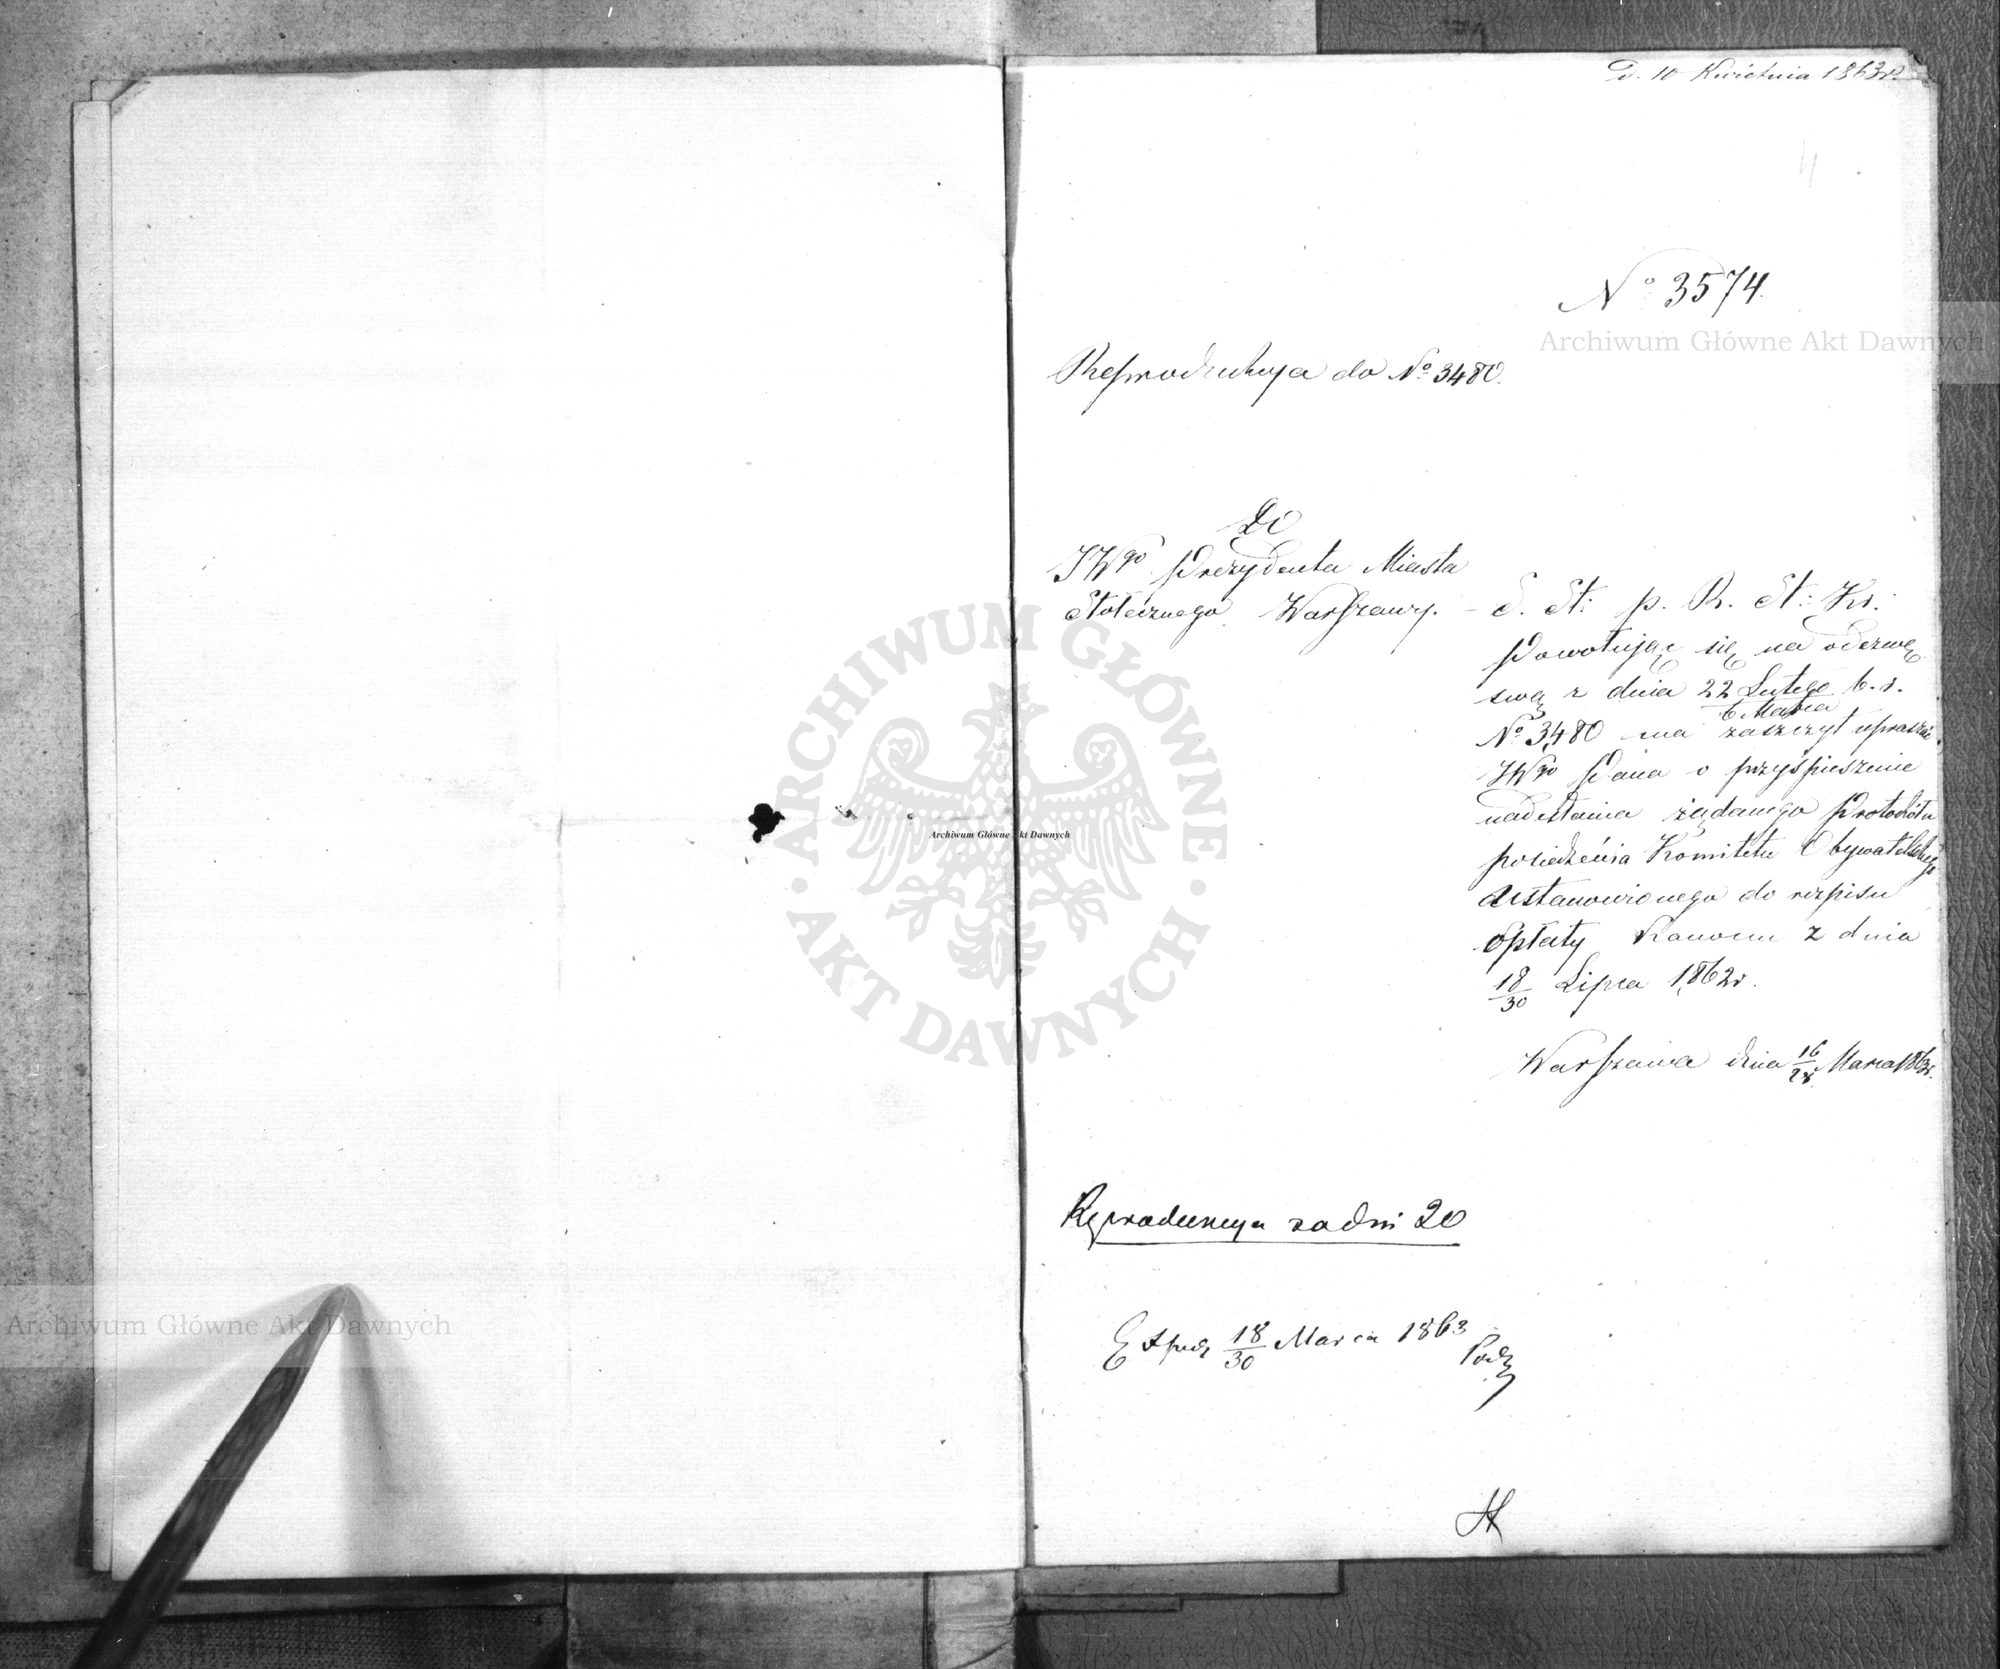 D. 10 Kwietnia 1863 r.
4
No 3574.
Archiwum Główne Akt Dawnych
Reprodukcya do No 3480.
Do
JWgo Prezydenta Miasta
Stołecznego Warszawy.
S. St: p. R. St: Kr.
Powołując się na odezwę
swą z dnia 22 Lutego b. r.
6 Marca
No 3480 ma zaszczyt upraszać
JWgo Pana o przyśpieszenie
nadesłania żądanego Protokółu
posiedzenia Komitetu Obywatelskiego
ustanowionego do rozpisu
Opłaty Kanonu z dnia
18/30 Lipca 1862 r.
Warszawa dnia 16/28 Marca 1863 r.
Reprodukcya za dni 20
Exped 18/30 Marca 1863
ARCHIWUM GŁÓWNE
AKT DAWNYCH
Archiwum Główne Akt Dawnych
Archiwum Główne Akt Dawnych